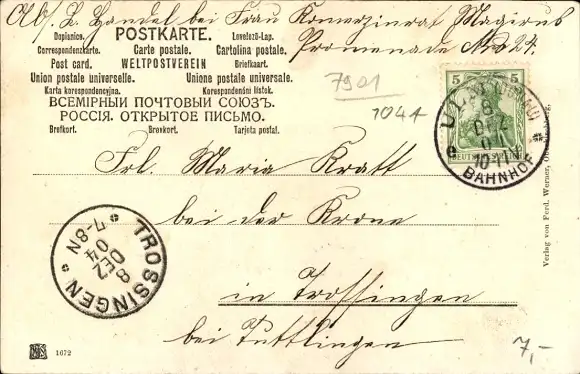 Abs. L. Handel bei Frau Komerzinrat Magirus
Promenade No 24.
POSTKARTE.
Dopisnice. Levelező-Lap.
Correspondenzkarte. Carte postale. Cartolina postale.
Post card. WELTPOSTVEREIN Briefkaart.
Union postale universelle. Unione postale universale.
Karta korespondencyjna. Korespondenční lístek.
ВСЕМІРНЫЙ ПОЧТОВЫЙ СОЮЗЪ.
РОССІЯ. ОТКРЫТОЕ ПИСЬМО.
Brefkort. Brevkort. Tarjeta postal.
7901
1044
5 5
DEUTSCHES REICH
ULM (DONAU)
8
DEZ
BAHNHOF
Frl. Maria Kratt
bei der Krone
in Trossingen
bei Tuttlingen
TROSSINGEN
8
DEZ
04
7-8N
7,-
1672
Verlag von Ferd. Werner,